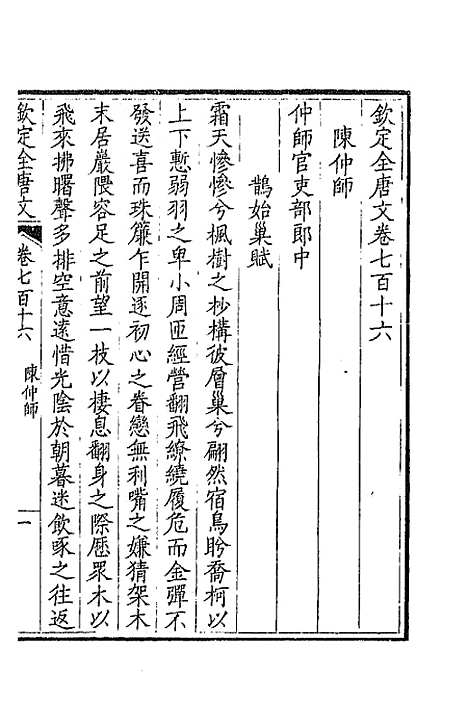 欽定全唐文卷七百十六
陳仲師
仲師官吏部郎中
鵲始巢賦
霜天慘慘兮楓樹之杪構彼層巢兮翩然宿鳥盻喬柯以
上下慙弱羽之卑小周匝經營翻飛繚繞履危而金彈不
發送喜而珠簾乍開逐初心之眷戀無利嘴之嫌猜架木
末居巖隈容足之前望一枝以棲息翻身之際歷眾木以
飛來拂曙聲多排空意遠惜光陰於朝暮迷飲啄之往返
欽定全唐文
卷七百十六
陳仲師
一